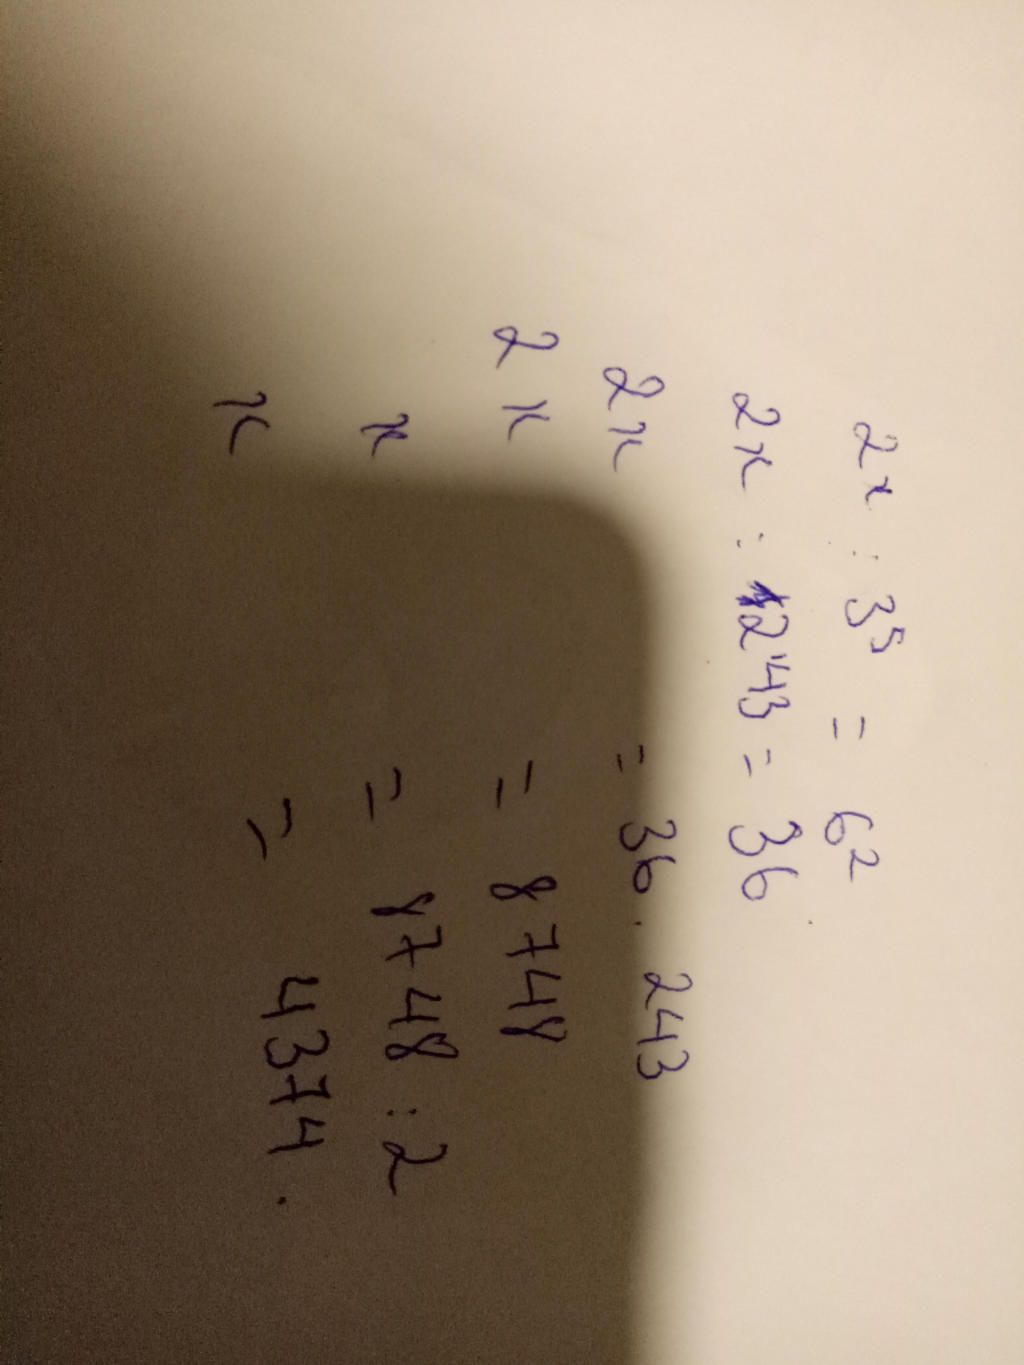 2x : 3⁵ = 6²
2x : 243 = 36
2x = 36 . 243
2x = 8748
x = 8748 : 2
x = 4374.